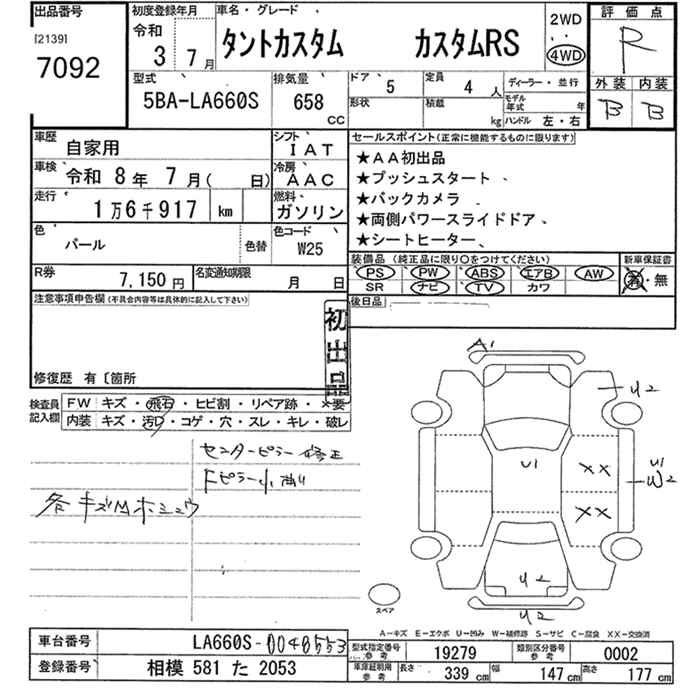 出品番号
[2139]
7092
初度登録年月
令和
3 年 7 月
車名・グレード
タントカスタム カスタムRS
2WD
4WD
評価点
R
外装 内装
B B
型式
5BA-LA660S
排気量
658 CC
ドア
5
形状
定員
4 人
積載 kg
ディーラー・並行
モデル年式 年
ハンドル 左・右
車歴
自家用
シフト
IAT
車検
令和 8 年 7 月( 日)
冷房
AAC
走行
1万6千917 km
燃料
ガソリン
色
パール
色替
色コード
W25
R券
7,150 円
名変通知期限
月 日
セールスポイント(正常に機能するものに限ります)
★AA初出品
★プッシュスタート
★バックカメラ
★両側パワースライドドア
★シートヒーター
装備品(純正品に限り○をつけてください)
PS PW ABS エアB AW
SR ナビ TV カワ
新車保証書
有・無
後日品
注意事項申告欄(不具合内容等は具体的に記入して下さい)
初出品
修復歴 有〔箇所
検査員記入欄
FW キズ・飛石・ヒビ割・リペア跡・×要
内装 キズ・汚レ・コゲ・穴・スレ・キレ・破レ
センターピラー修正
Fピラー小
各キズ凹ホシュウ
A1
U2
U1
XX
U1
W2
XX
U2
U2
スペア
A-キズ E-エクボ U-凹み W-補修跡 S-サビ C-腐食 XX-交換済
車台番号
LA660S-0048553
登録番号
相模 581 た 2053
型式指定番号
参考
19279
類別区分番号
参考
0002
車庫証明用
参考
長さ 339 cm 幅 147 cm 高さ 177 cm